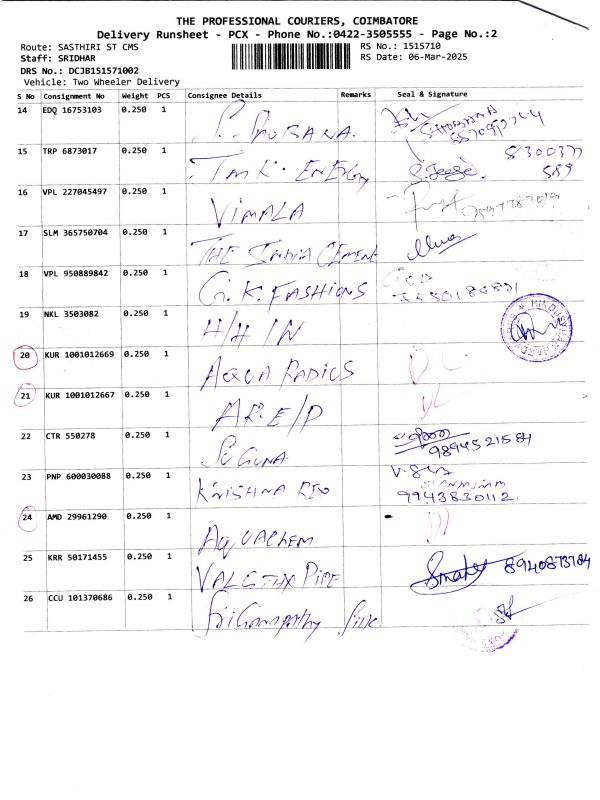 THE PROFESSIONAL COURIERS, COIMBATORE
Delivery Runsheet - PCX - Phone No.:0422-3505555 - Page No.:2
Route: SASTHIRI ST CMS
RS No.: 1515710
Staff: SRIDHAR
RS Date: 06-Mar-2025
DRS No.: DCJB151571002
Vehicle: Two Wheeler Delivery
S No Consignment No Weight PCS Consignee Details Remarks Seal & Signature
14 EDQ 16753103 0.250 1 S. SHOBANA SHOBANA
15 TRP 6873017 0.250 1 TMK. ENERGY 8300377
589
16 VPL 227045497 0.250 1 VIMALA
17 SLM 365750704 0.250 1 THE INDIA CEMENT
18 VPL 950889842 0.250 1 G.K. FASHIONS
19 NKL 3503082 0.250 1 H/H IN
20 KUR 1001012669 0.250 1 AQUA RADIUS DL
21 KUR 1001012667 0.250 1 AR.E/P DL
22 CTR 550278 0.250 1 SUGUNA 9894521584
23 PNP 600030088 0.250 1 KRISHNA
9943830112.
24 AMD 29961290 0.250 1 AQUACHEM
25 KRR 50171455 0.250 1 PIPE 8940873784
26 CCU 101370686 0.250 1 Sri Ganapathy Silk